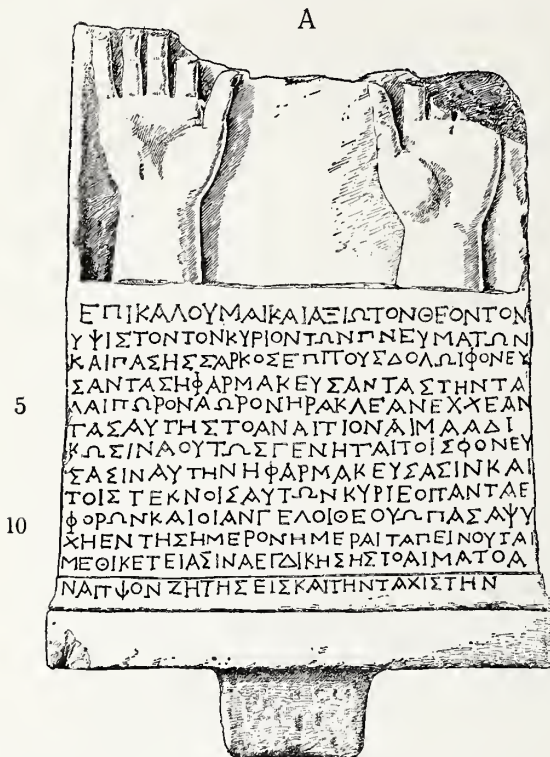 A
ΕΠΙΚΑΛΟΥΜΑΙΚΑΙΑΞΙΩΤΟΝΘΕΟΝΤΟΝ
ΥΨΙΣΤΟΝΤΟΝΚΥΡΙΟΝΤΩΝΠΝΕΥΜΑΤΩΝ
ΚΑΙΠΑΣΗΣΣΑΡΚΟΣΕΠΙΤΟΥΣΔΟΛΩΙΦΟΝΕΥ
ΣΑΝΤΑΣΗΦΑΡΜΑΚΕΥΣΑΝΤΑΣΤΗΝΤΑ
5 ΛΑΙΠΩΡΟΝΑΩΡΟΝΗΡΑΚΛΕΑΝΕΧΧΕΑΝ
ΤΑΣΑΥΤΗΣΤΟΑΝΑΙΤΙΟΝΑΙΜΑΑΔΙ
ΚΩΣΙΝΑΟΥΤΩΣΓΕΝΗΤΑΙΤΟΙΣΦΟΝΕΥ
ΣΑΣΙΝΑΥΤΗΝΗΦΑΡΜΑΚΕΥΣΑΣΙΝΚΑΙ
ΤΟΙΣΤΕΚΝΟΙΣΑΥΤΩΝΚΥΡΙΕΟΠΑΝΤΑΕ
10 ΦΟΡΩΝΚΑΙΟΙΑΝΓΕΛΟΙΘΕΟΥΩΠΑΣΑΨΥ
ΧΗΕΝΤΗΣΗΜΕΡΟΝΗΜΕΡΑΙΤΑΠΕΙΝΟΥΤΑΙ
ΜΕΘΙΚΕΤΕΙΑΣΙΝΑΕΓΔΙΚΗΣΗΣΤΟΑΙΜΑΤΟΑ
ΝΑΙΤΙΟΝΖΗΤΗΣΕΙΣΚΑΙΤΗΝΤΑΧΙΣΤΗΝ